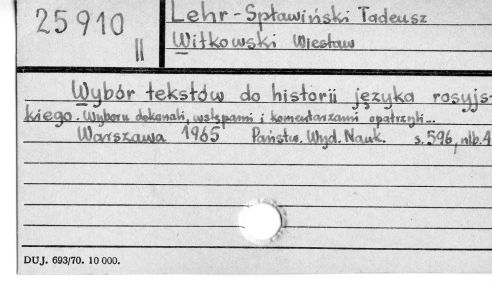 25 910
II
Lehr-Spławiński Tadeusz
Witkowski Wiesław
Wybór tekstów do historii języka rosyjs-
kiego. Wyboru dokonali, wstępami i komentarzami opatrzyli...
Warszawa 1965 Państw. Wyd. Nauk. s. 596, nlb. 4
DUJ. 693/70. 10 000.